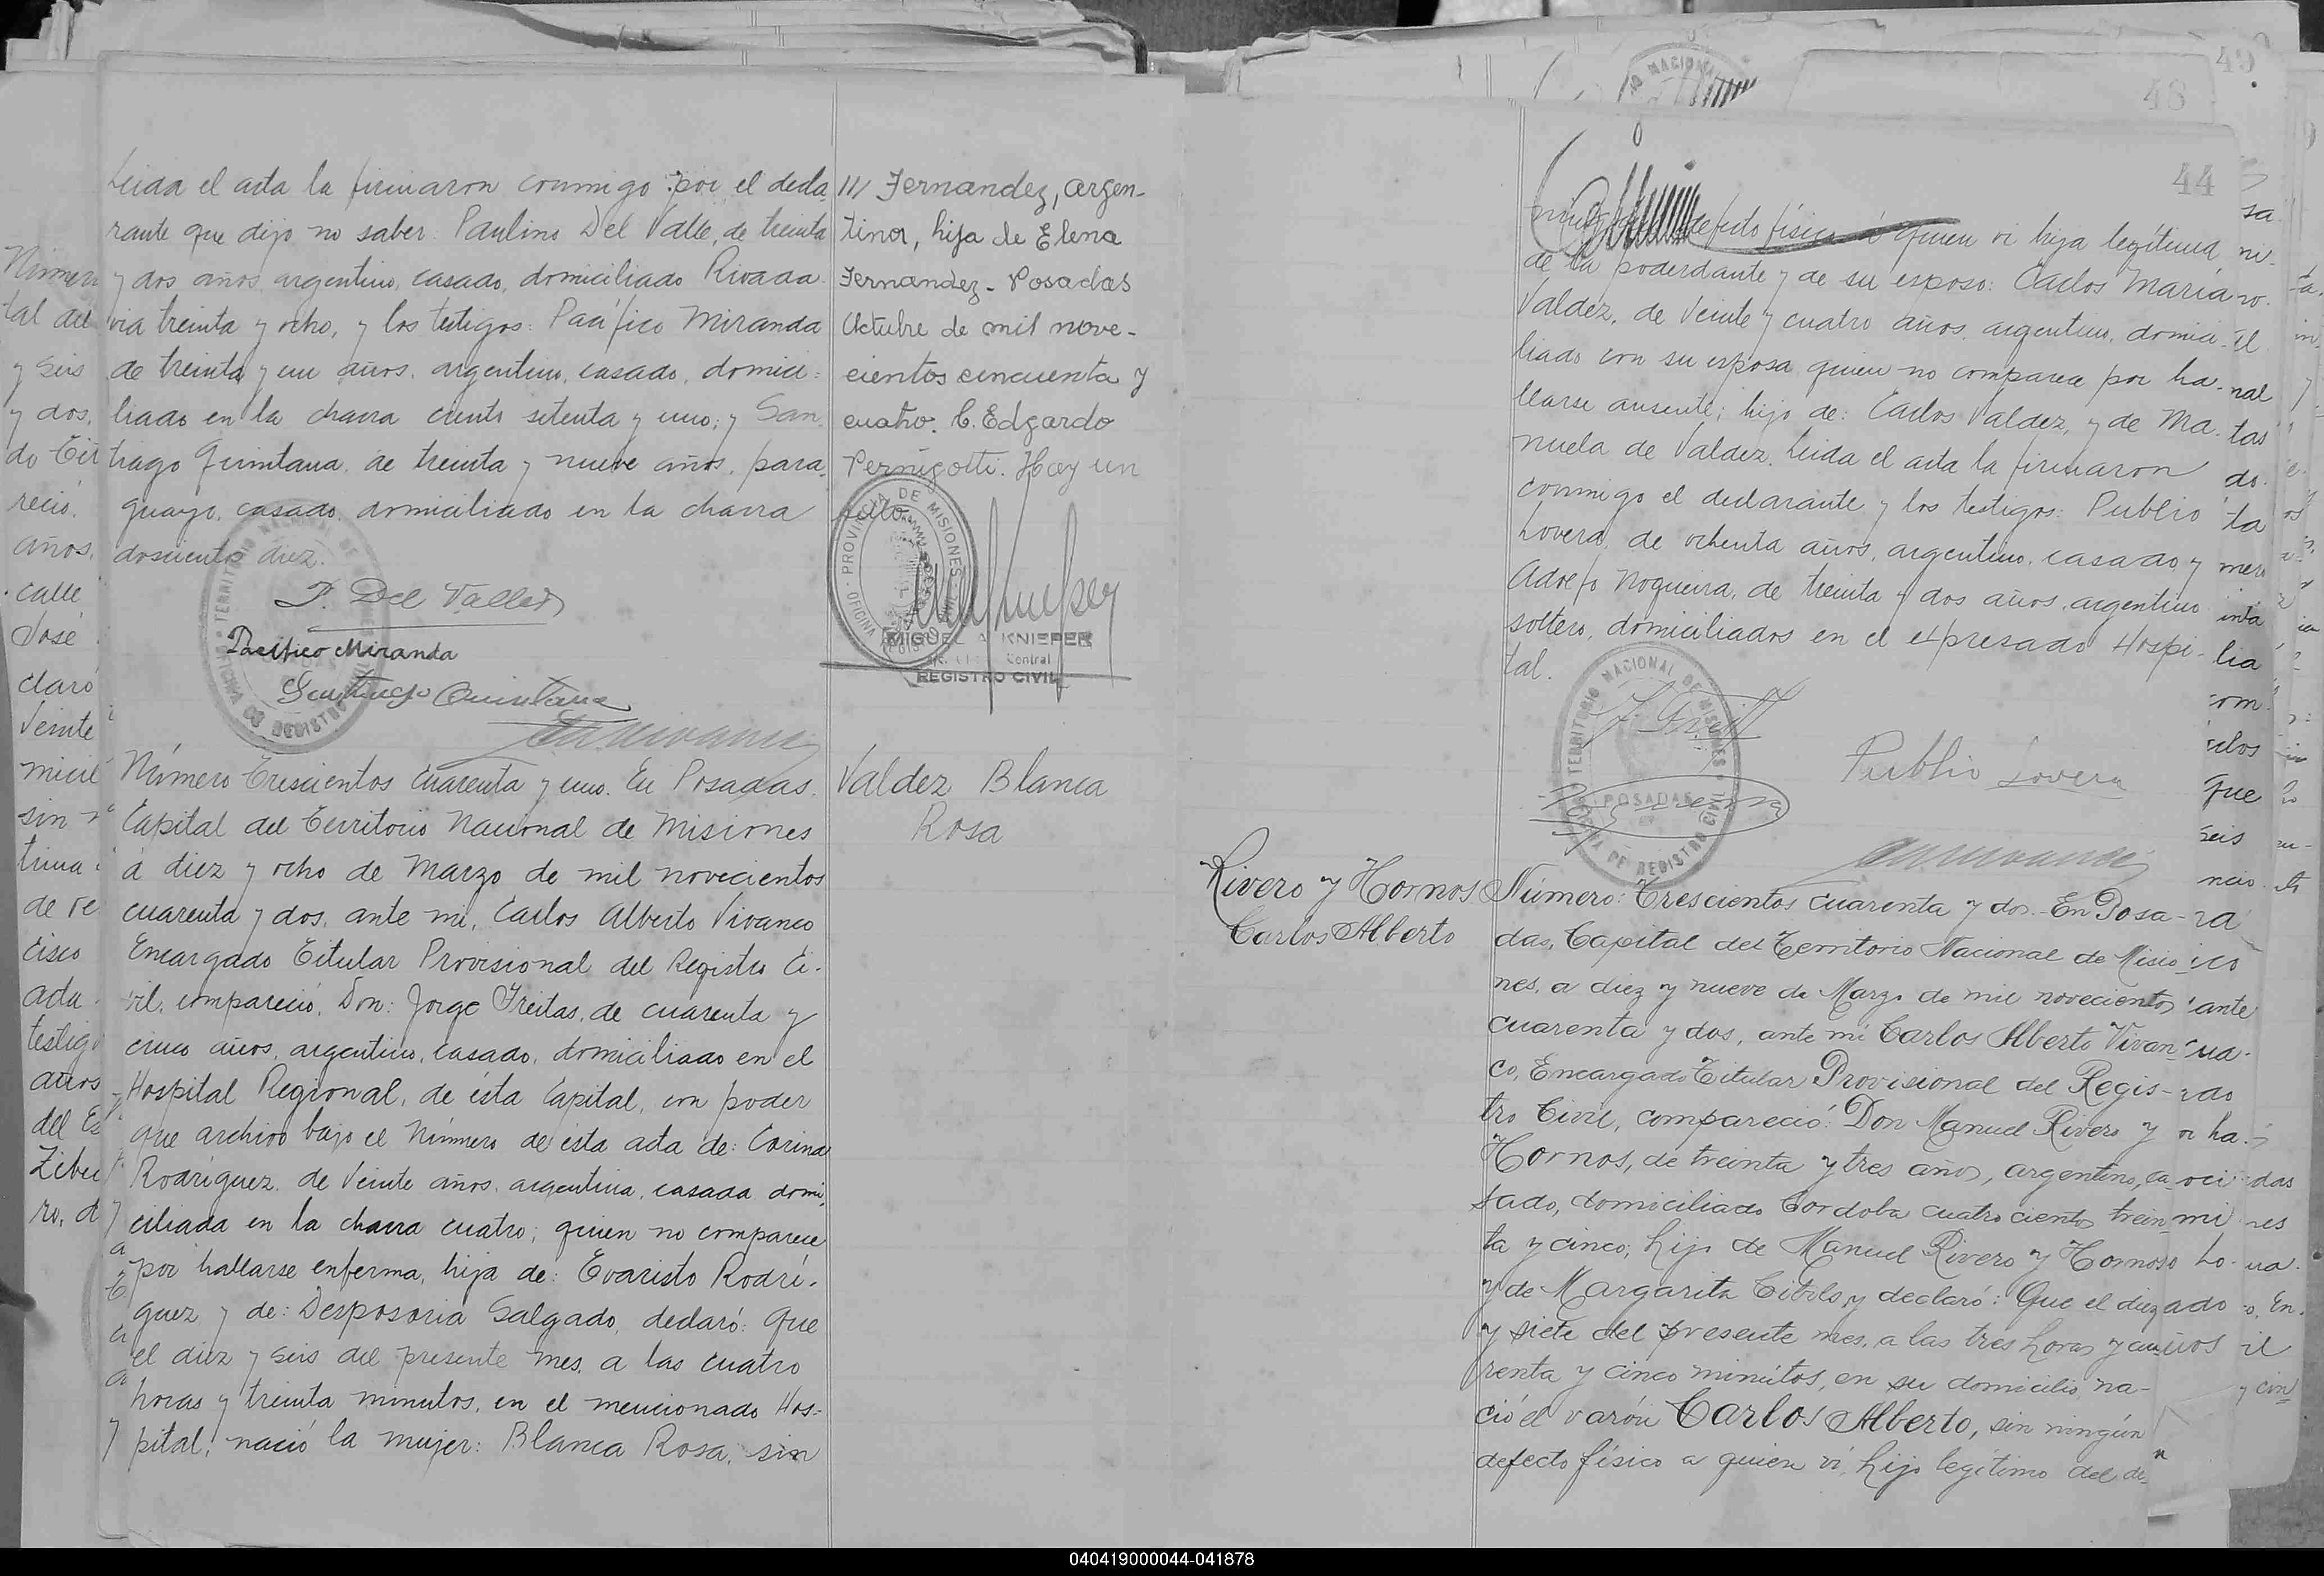 Leida el acta la firmaron conmigo: por el decla-
rante que dijo no saber: Paulino Del Valle, de treinta
y dos años, argentino, casado, domiciliado Rivada-
via treinta y ocho, y los testigos: Pacífico Miranda
de treinta y un años, argentino, casado, domici-
liado en la chacra ciento setenta y uno; y San-
tiago Quintana, de treinta y nueve años, para-
guayo, casado, domiciliado en la chacra
doscientos diez.
P. Del Valle
Pacífico Miranda
Santiago Quintana
/// Fernandez, argen-
tina, hija de Elena
Fernandez - Posadas
Octubre de mil nove-
cientos cincuenta y
cuatro. C. Edgardo
Pernigotti. Hay un
sello
PROVINCIA DE MISIONES
MIGUEL A. KNIEPER
REGISTRO CIVIL
Número Trescientos cuarenta y uno. En Posadas.
Capital del Territorio Nacional de Misiones
á diez y ocho de Marzo de mil novecientos
cuarenta y dos, ante mi, Carlos Alberto Vivanco
Encargado Titular Provisional del Registro Ci-
vil, compareció, Don: Jorge Freitas, de cuarenta y
cinco años, argentino, casado, domiciliado en el
Hospital Regional, de ésta Capital, con poder
que archivo bajo el Número de ésta acta de: Corina
Rodríguez, de Veinte años, argentina, casada, domi-
ciliada en la chacra cuatro; quien no comparece
por hallarse enferma, hija de: Evaristo Rodrí-
guez y de: Desposoria Salgado, declaró: Que
el diez y seis del presente mes, a las cuatro
horas y treinta minutos, en el mencionado Hos-
pital, nació la mujer: Blanca Rosa, sin
Valdez Blanca
Rosa
48
44
defecto físico á quien vi hija legítima
de la poderdante y de su esposo: Carlos María
Valdez, de Veinte y cuatro años, argentino, domici-
liado con su esposa, quien no comparece por ha-
llarse ausente; hijo de: Carlos Valdez, y de Ma-
nuela de Valdez. Leida el acta la firmaron
conmigo el declarante y los testigos: Publio
Lovera, de ochenta años, argentino, casado y
Adolfo Nogueira, de treinta y dos años, argentino
soltero, domiciliados en el expresado Hospi-
tal.
TERRITORIO NACIONAL DE MISIONES
POSADAS
Publio Lovera
Rivero y Hornos
Carlos Alberto
Número: Trescientos cuarenta y dos. - En Posa-
das, Capital del Territorio Nacional de Misio-
nes, a diez y nueve de Marzo de mil novecientos
cuarenta y dos, ante mí Carlos Alberto Vivan-
co, Encargado Titular Provisional del Regis-
tro Civil, compareció: Don Manuel Rivero y
Hornos, de treinta y tres años, argentino, ca-
sado, domiciliado Cordoba cuatrocientos trein-
ta y cinco, hijo de Manuel Rivero y Hornos
y de Margarita y declaró: Que el diez
y siete del presente mes, a las tres horas y cua-
renta y cinco minutos, en su domicilio, na-
ció el varón Carlos Alberto, sin ningún
defecto físico a quien vi, hijo legítimo del de-
040419000044-041878